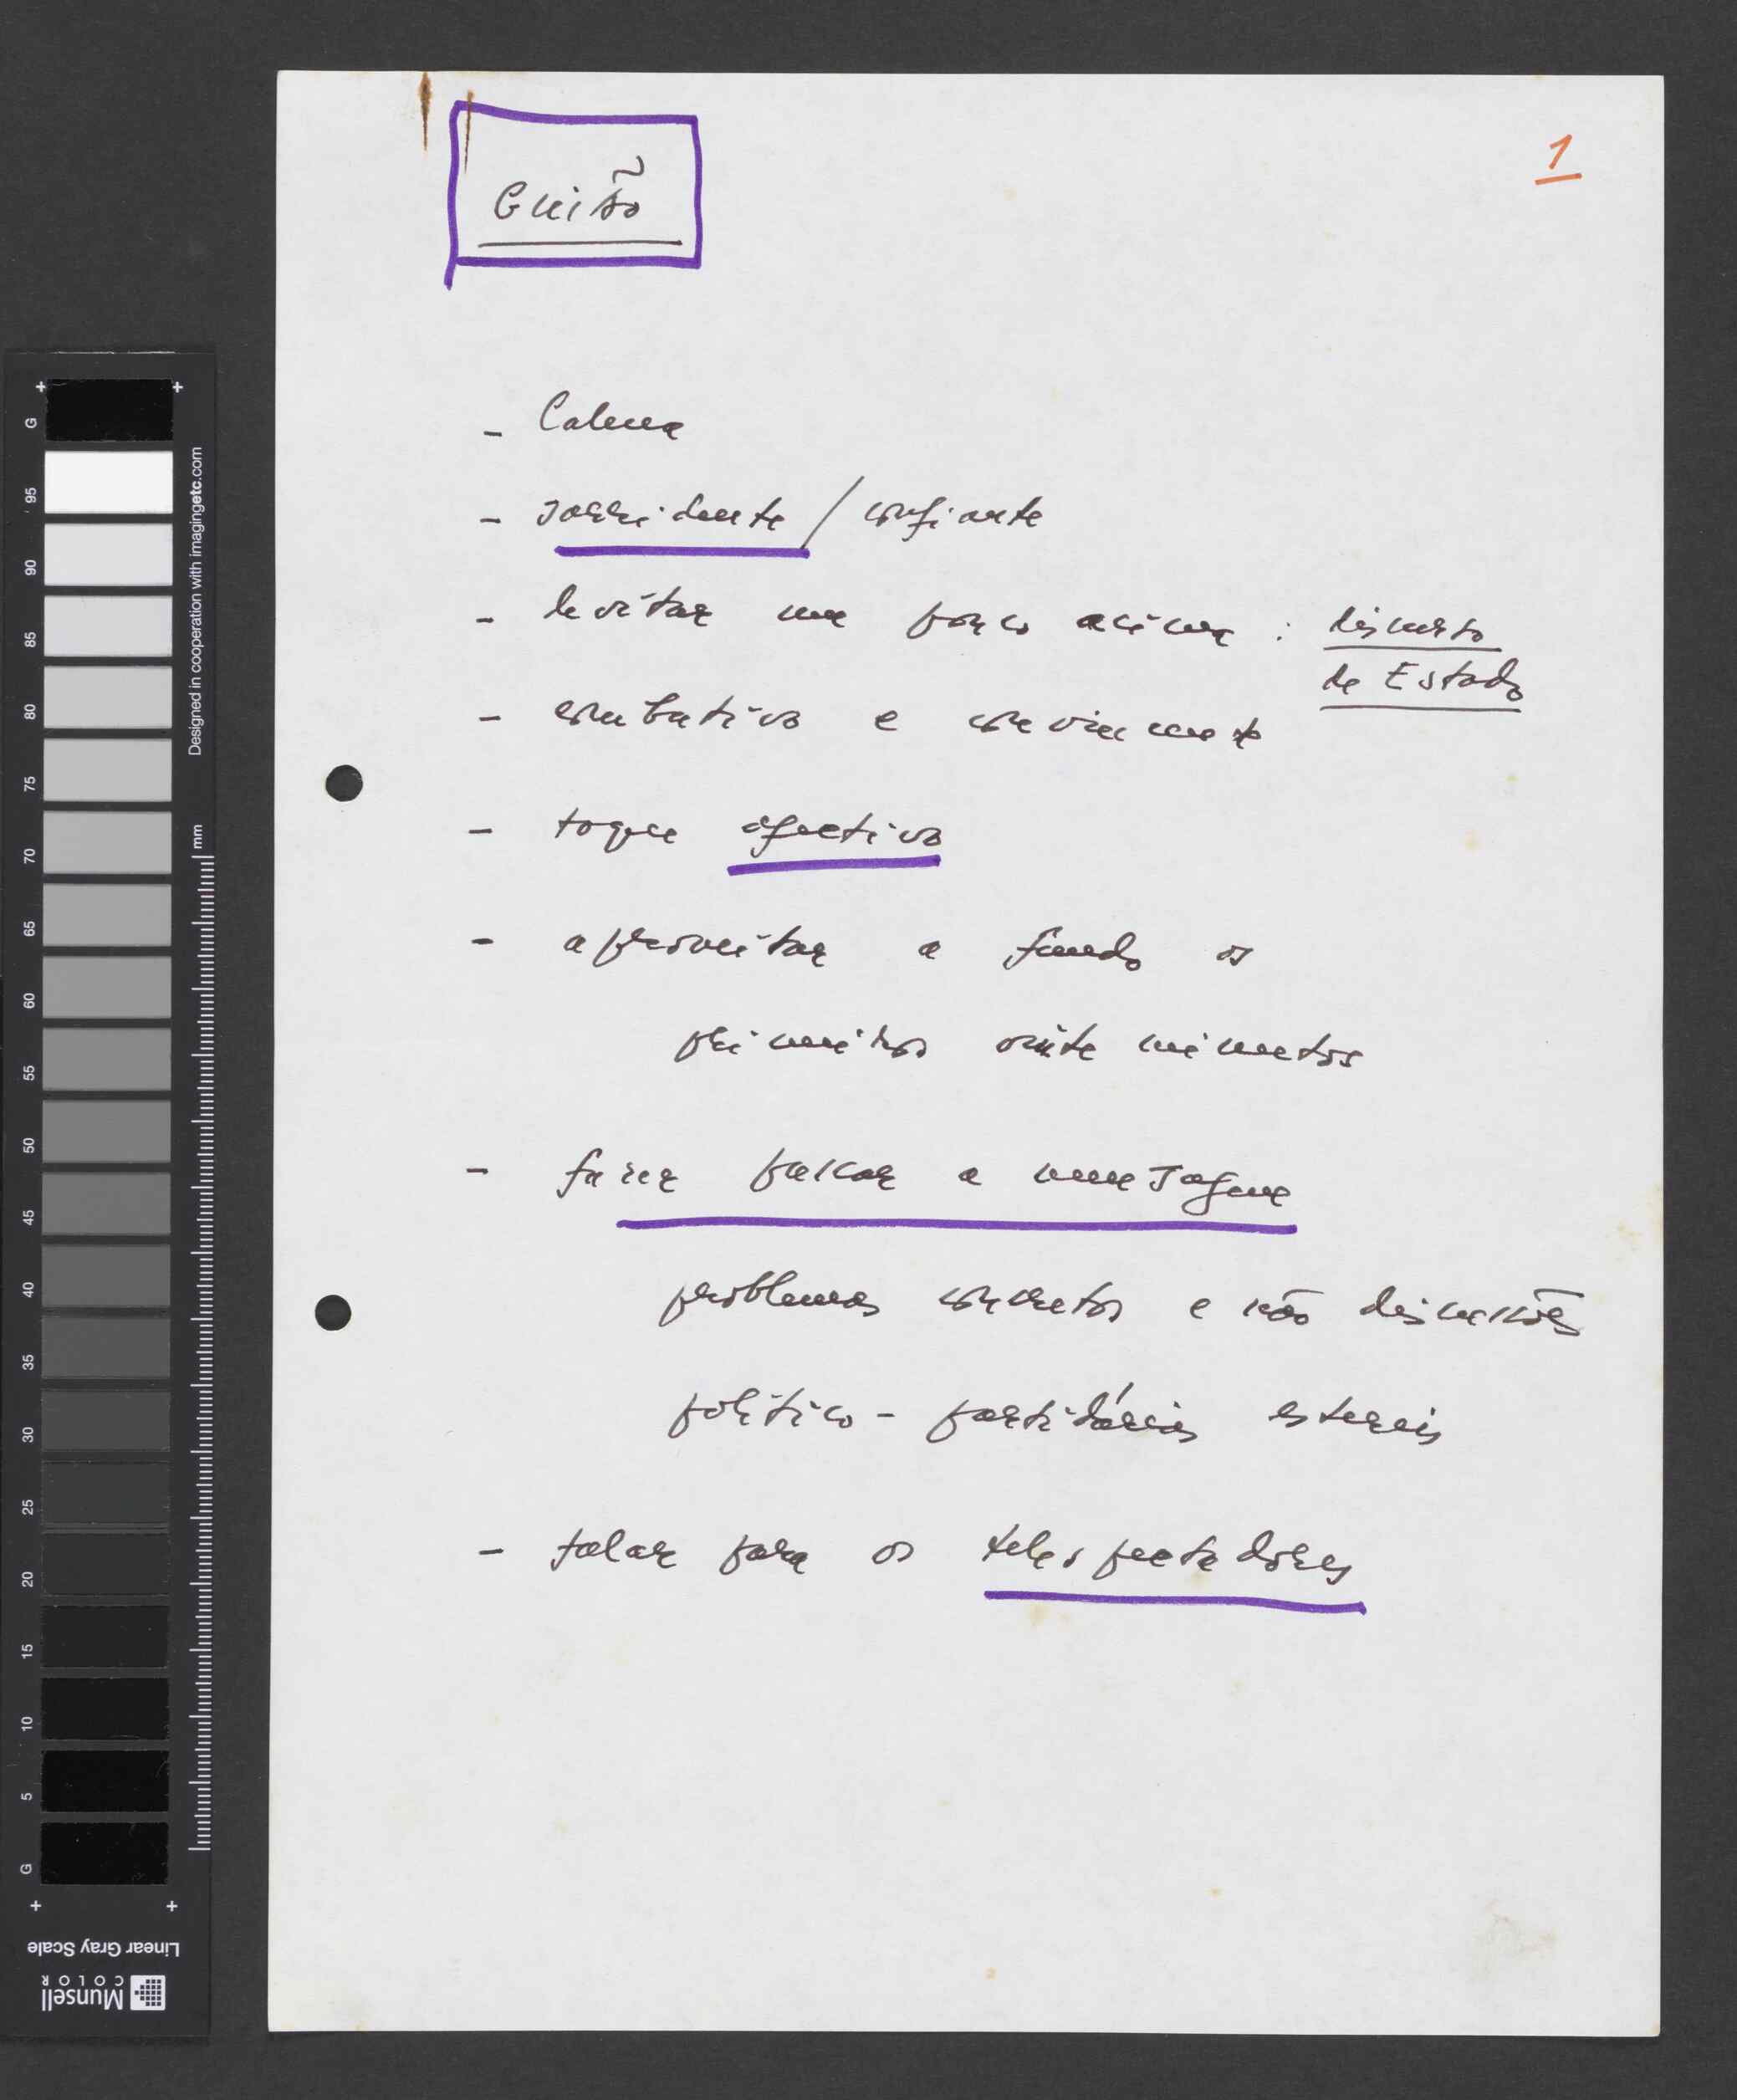 1
Guião
- Calma
- sorridente / confiante
- levitar um pouco acima : discurso
de Estado
- combativo e convincente
- toque afectivo
- aproveitar a fundo os
primeiros vinte minutos
- fazer passar a mensagem
problemas concretos e não discussões
político-partidárias estereis
- falar para os telespectadores
G 95 90 85 80 75 70 65 60 55 50 45 40 35 30 25 20 15 10 5 G
Designed in cooperation with imagingetc.com
mm
Linear Gray Scale
Munsell
COLOR